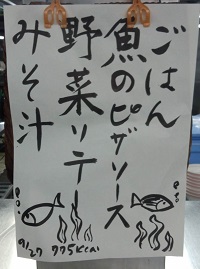 ごはん
魚のピザソース
野菜ソテー
みそ汁
9/27 775kcal